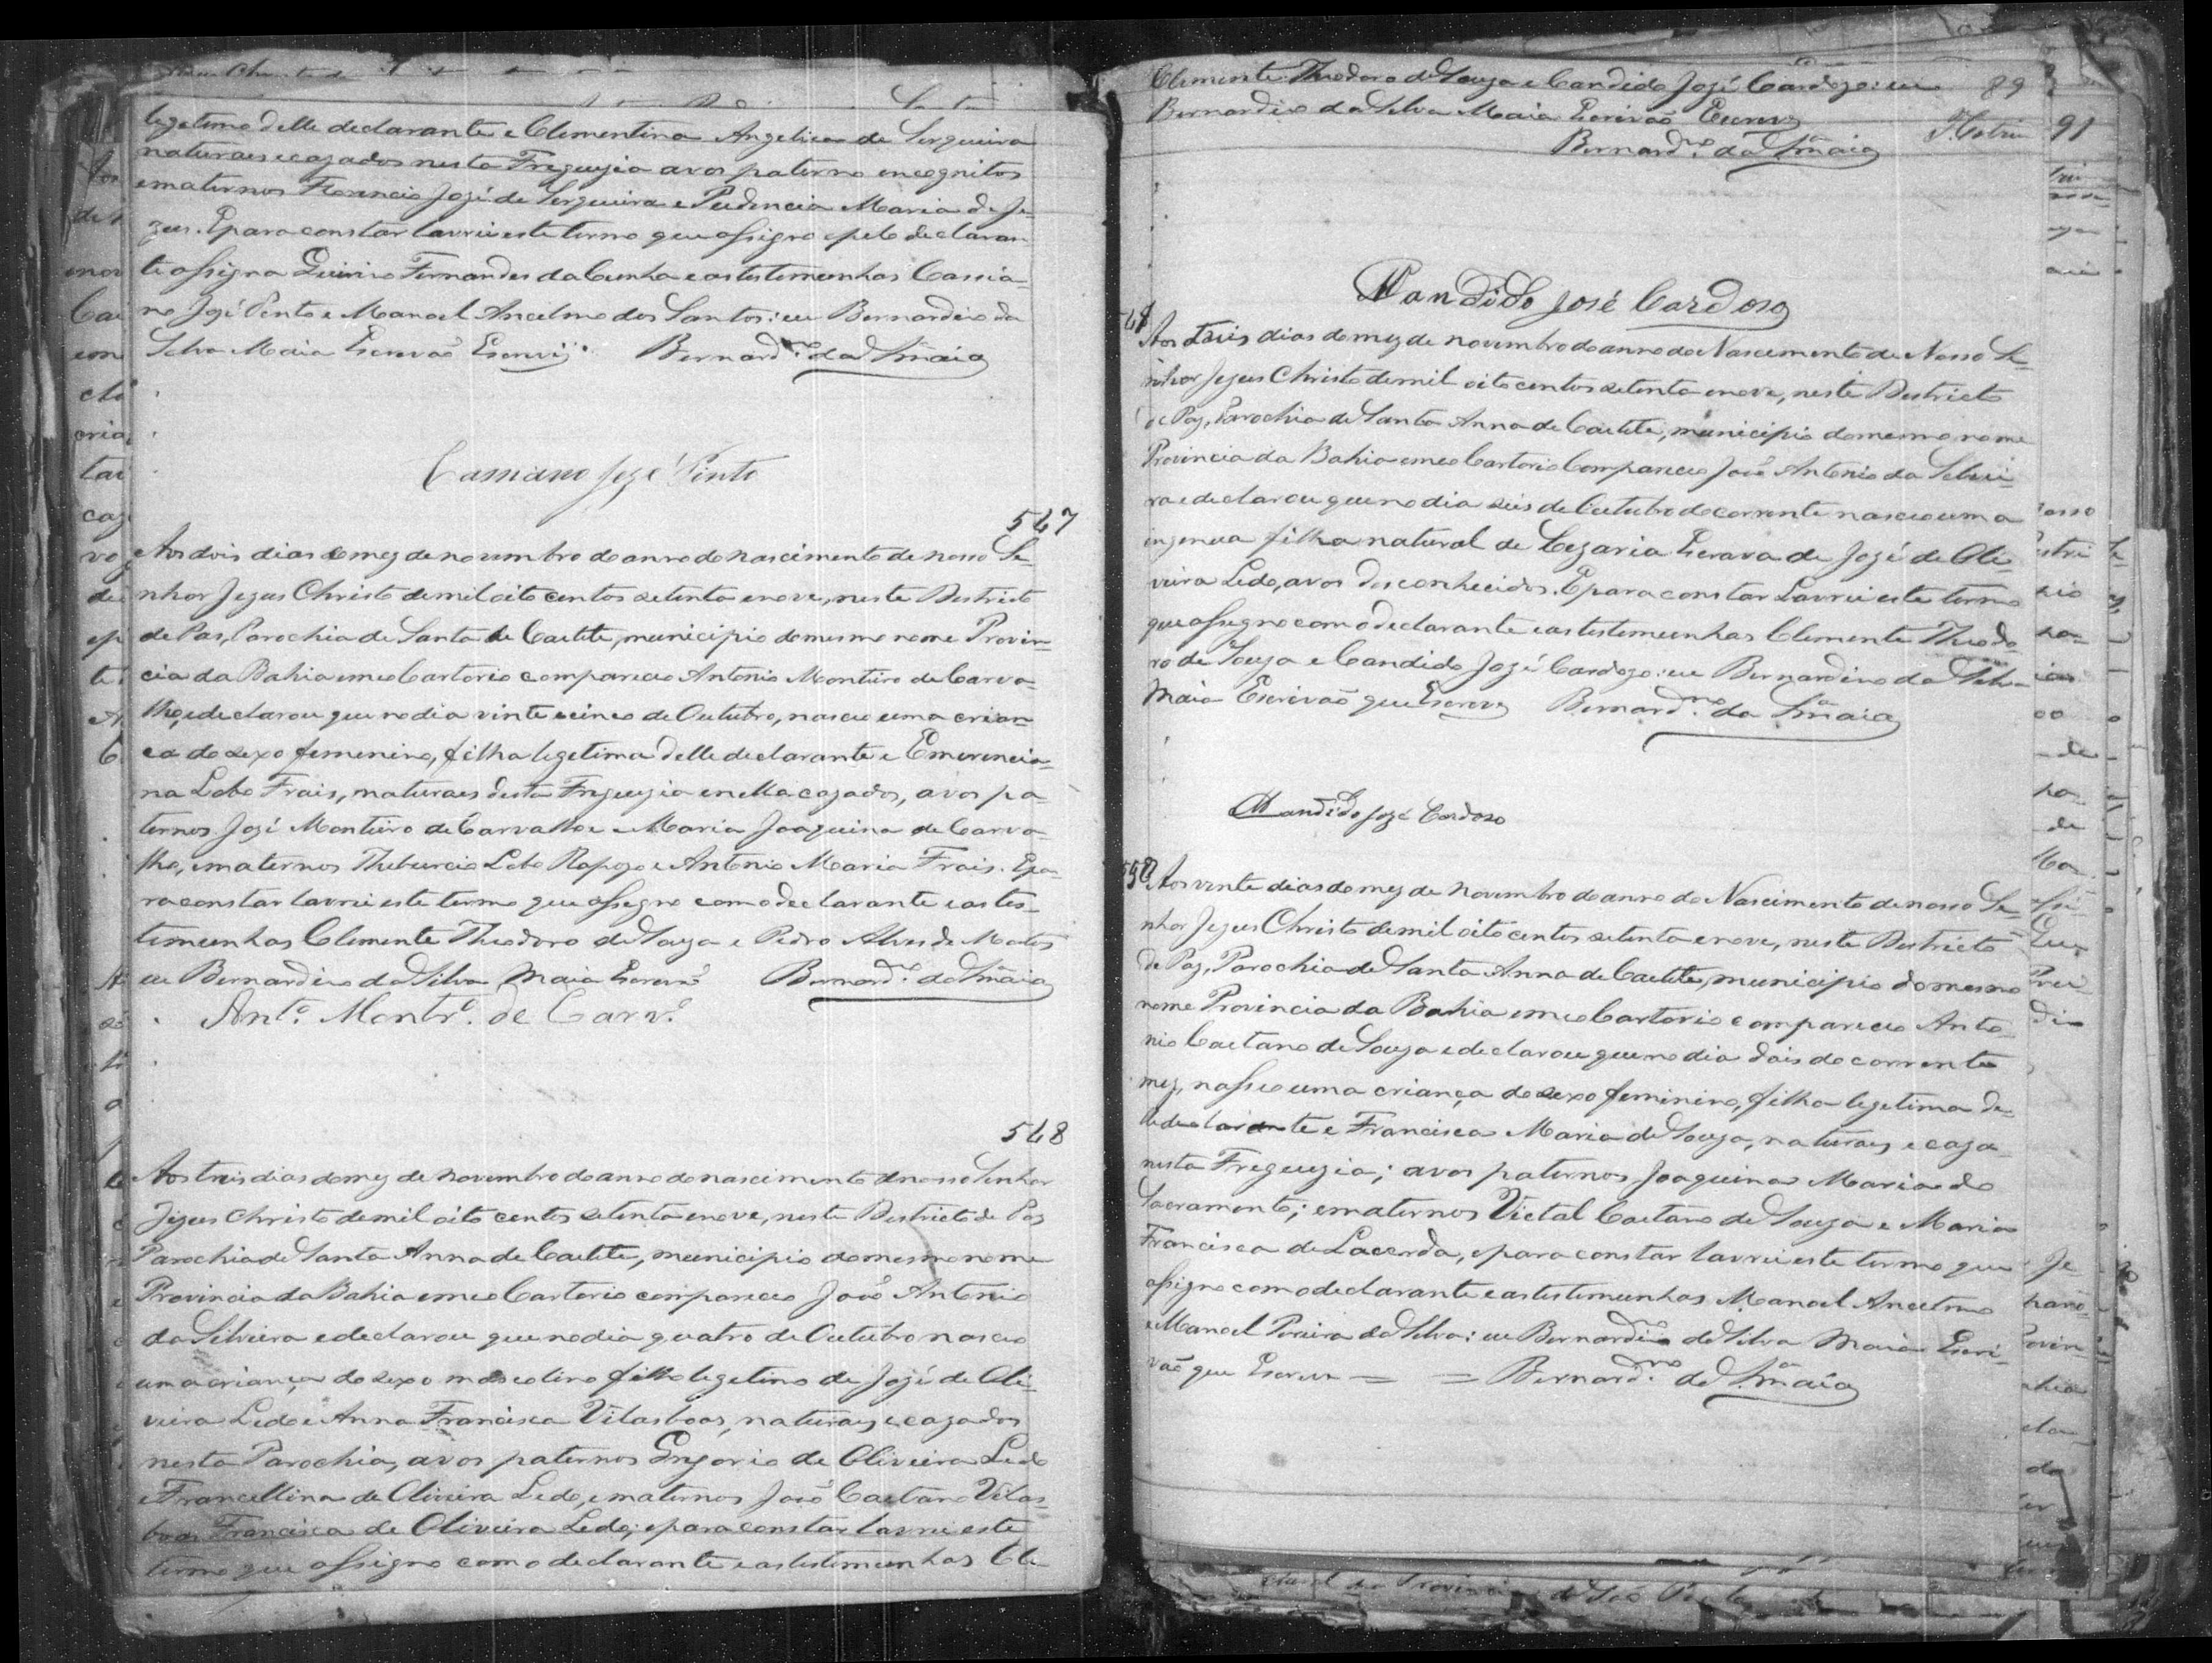 legetimo delle declarante e Clementina Angelica de Serqueira
naturaes e cazados nesta Freguezia avos paterno encognitos
e maternos Florencio José de Serqueira e Prudencia Maria de Je-
zus. E para constar lavrei este termo que assigno e pelo declaran-
te assigna Quirino Fernandes da Cunha e as testemunhas Cassia-
no José Pinto e Manoel Ancelmo dos Santos: eu Bernardino da
Silva Maia Escrivão Escrevy. Bernard.no da S.a Maia
Cassiano José Pinto
547
Aos dois dias do mez de novembro do anno do nascimento de nosso Se-
nhor Jezus Christo de mil oito centos setenta e nove, neste Destricto
de Pas, Parochia de Santa de Caetite, municipio do mesmo nome Provin-
cia da Bahia em meo Cartorio compareceo Antonio Monteiro de Carva-
lho, e declarou que no dia vinte e cinco de Outubro, nasceu uma crian-
ca do sexo femenino, filha legetima delle declarante e Emerencia-
na Lobo Frais, naturaes desta Freguezia e nella cazados, avos pa-
ternos José Monteiro de Carvalho e Maria Joaquina de Carva-
lho, e maternos Theburcio Lobo Rapozo e Antonio Maria Frais. E pa-
ra constar lavrei este termo que assigno com o declarante e as tes-
temunhas Clemente Theodoro de Souza e Pedro Alves de Matos
eu Bernardino da Silva Maia Escrivão Bernard.o da S.a Maia
Ant.o Montr.o de Carv.o
548
Aos treis dias do mez de novembro do anno do nascimento de nosso Senhor
Jezus Christo de mil oito centos setenta e nove, neste Destricto de Pas
Parochia de Santa Anna de Caetite, municipio do mesmo nome
Provincia da Bahia em meo Cartorio compareceo João Antonio
da Silveira e declarou que no dia quatro de Outubro nasceo
uma criança do sexo mascolino filho legetimo de José de Oli-
veira Ledo e Anna Francisca Vilasboas, naturaes e cazados
nesta Parochia, avos paternos Gregorio de Oliveira Ledo
e Francellina de Oliveira Ledo, e maternos José Caetano Vilas-
boas Francisca de Oliveira Ledo; e para constar lavrei este
termo que assigno com o declarante e as testemunhas Cle-
Clemente Theodoro de Souza e Candido José Cardozo: eu
Bernardino da Silva Maia Escrivão Escrevy
Bernard.no da S.a Maia
89
91
Candido José Cardoso
Aos treis dias do mez de novembro do anno do Nascimento de Nosso Se-
nhor Jezus Christo de mil oito centos setenta e nove, neste Destricto
de Paz, Parochia de Santa Anna de Caetite, municipio do mesmo nome
Provincia da Bahia em meo Cartorio Compareceo João Antonio da Silvei-
ra e declarou que no dia seis de Outubro do corrente nasceo uma
ingenua filha natural de Cezaria Escrava de José de Oli-
veira Ledo, avos desconhecidos. E para constar Lavrei este termo
que assigno com o declarante e as testemunhas Clemente Theodo-
ro de Souza e Candido José Cardozo: eu Bernardino da Silva
Maia Escrivão que Escrevy Bernard.no da S.a Maia
Candido José Cardoso
550
Aos vinte dias do mez de Novembro do anno do Nascimento de nosso Se-
nhor Jezus Christo de mil oito centos setenta e nove, neste Destricto
de Paz, Parochia de Santa Anna de Caetite, municipio do mesmo
nome Provincia da Bahia em meo Cartorio compareceo Anto-
nio Caetano de Souza e declarou que no dia dois do corrente
mez, nasceo uma criança do sexo feminino, filha legetima de-
lle declarante e Francisca Maria de Souza, naturaes e caza
nesta Freguezia; avos paternos Joaquina Maria do
Sacramento; e maternos Victal Caetano de Souza e Maria
Francisca de Lacerda, e para constar lavrei este termo que
assigno com o declarante e as testemunhas Manoel Ancelmo
e Manoel Pereira da Silva: eu Bernardino da Silva Maia Escri-
vão que Escrevy = = Bernard.no da S.a Maia